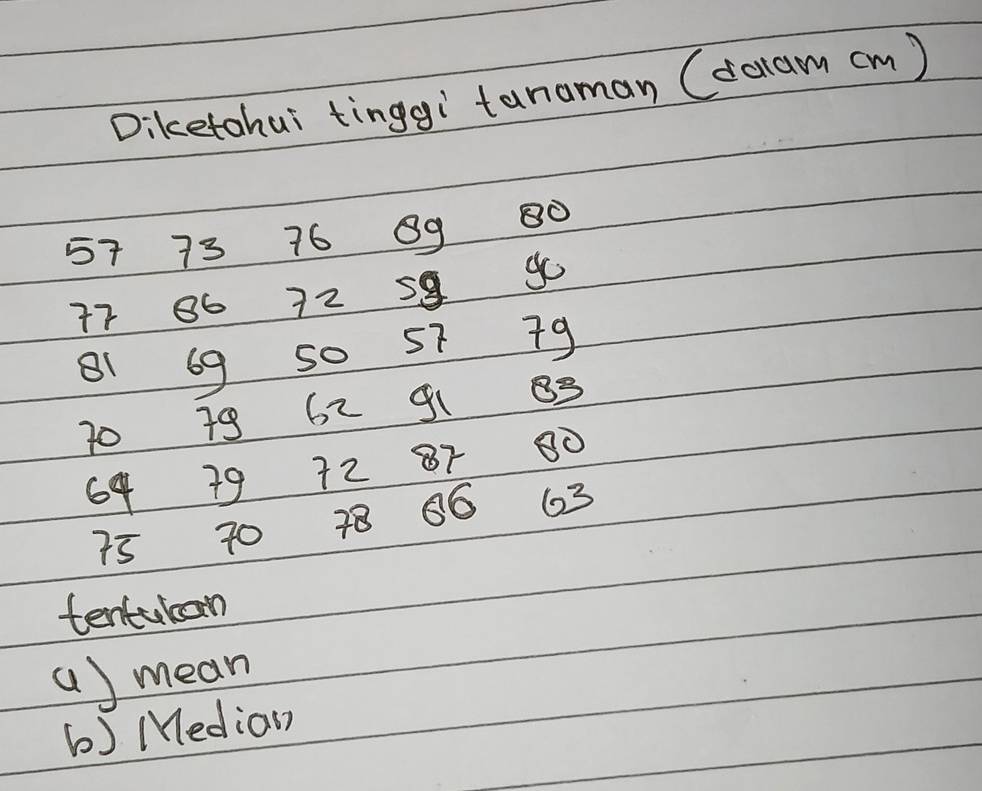 Diketahui tinggi tanaman (dalam cm)
57 73 76 89 80
77 86 72 59 90
81 69 50 57 79
70 79 62 91 83
64 79 72 87 80
75 70 78 86 63
tentukan
a) mean
b) Median